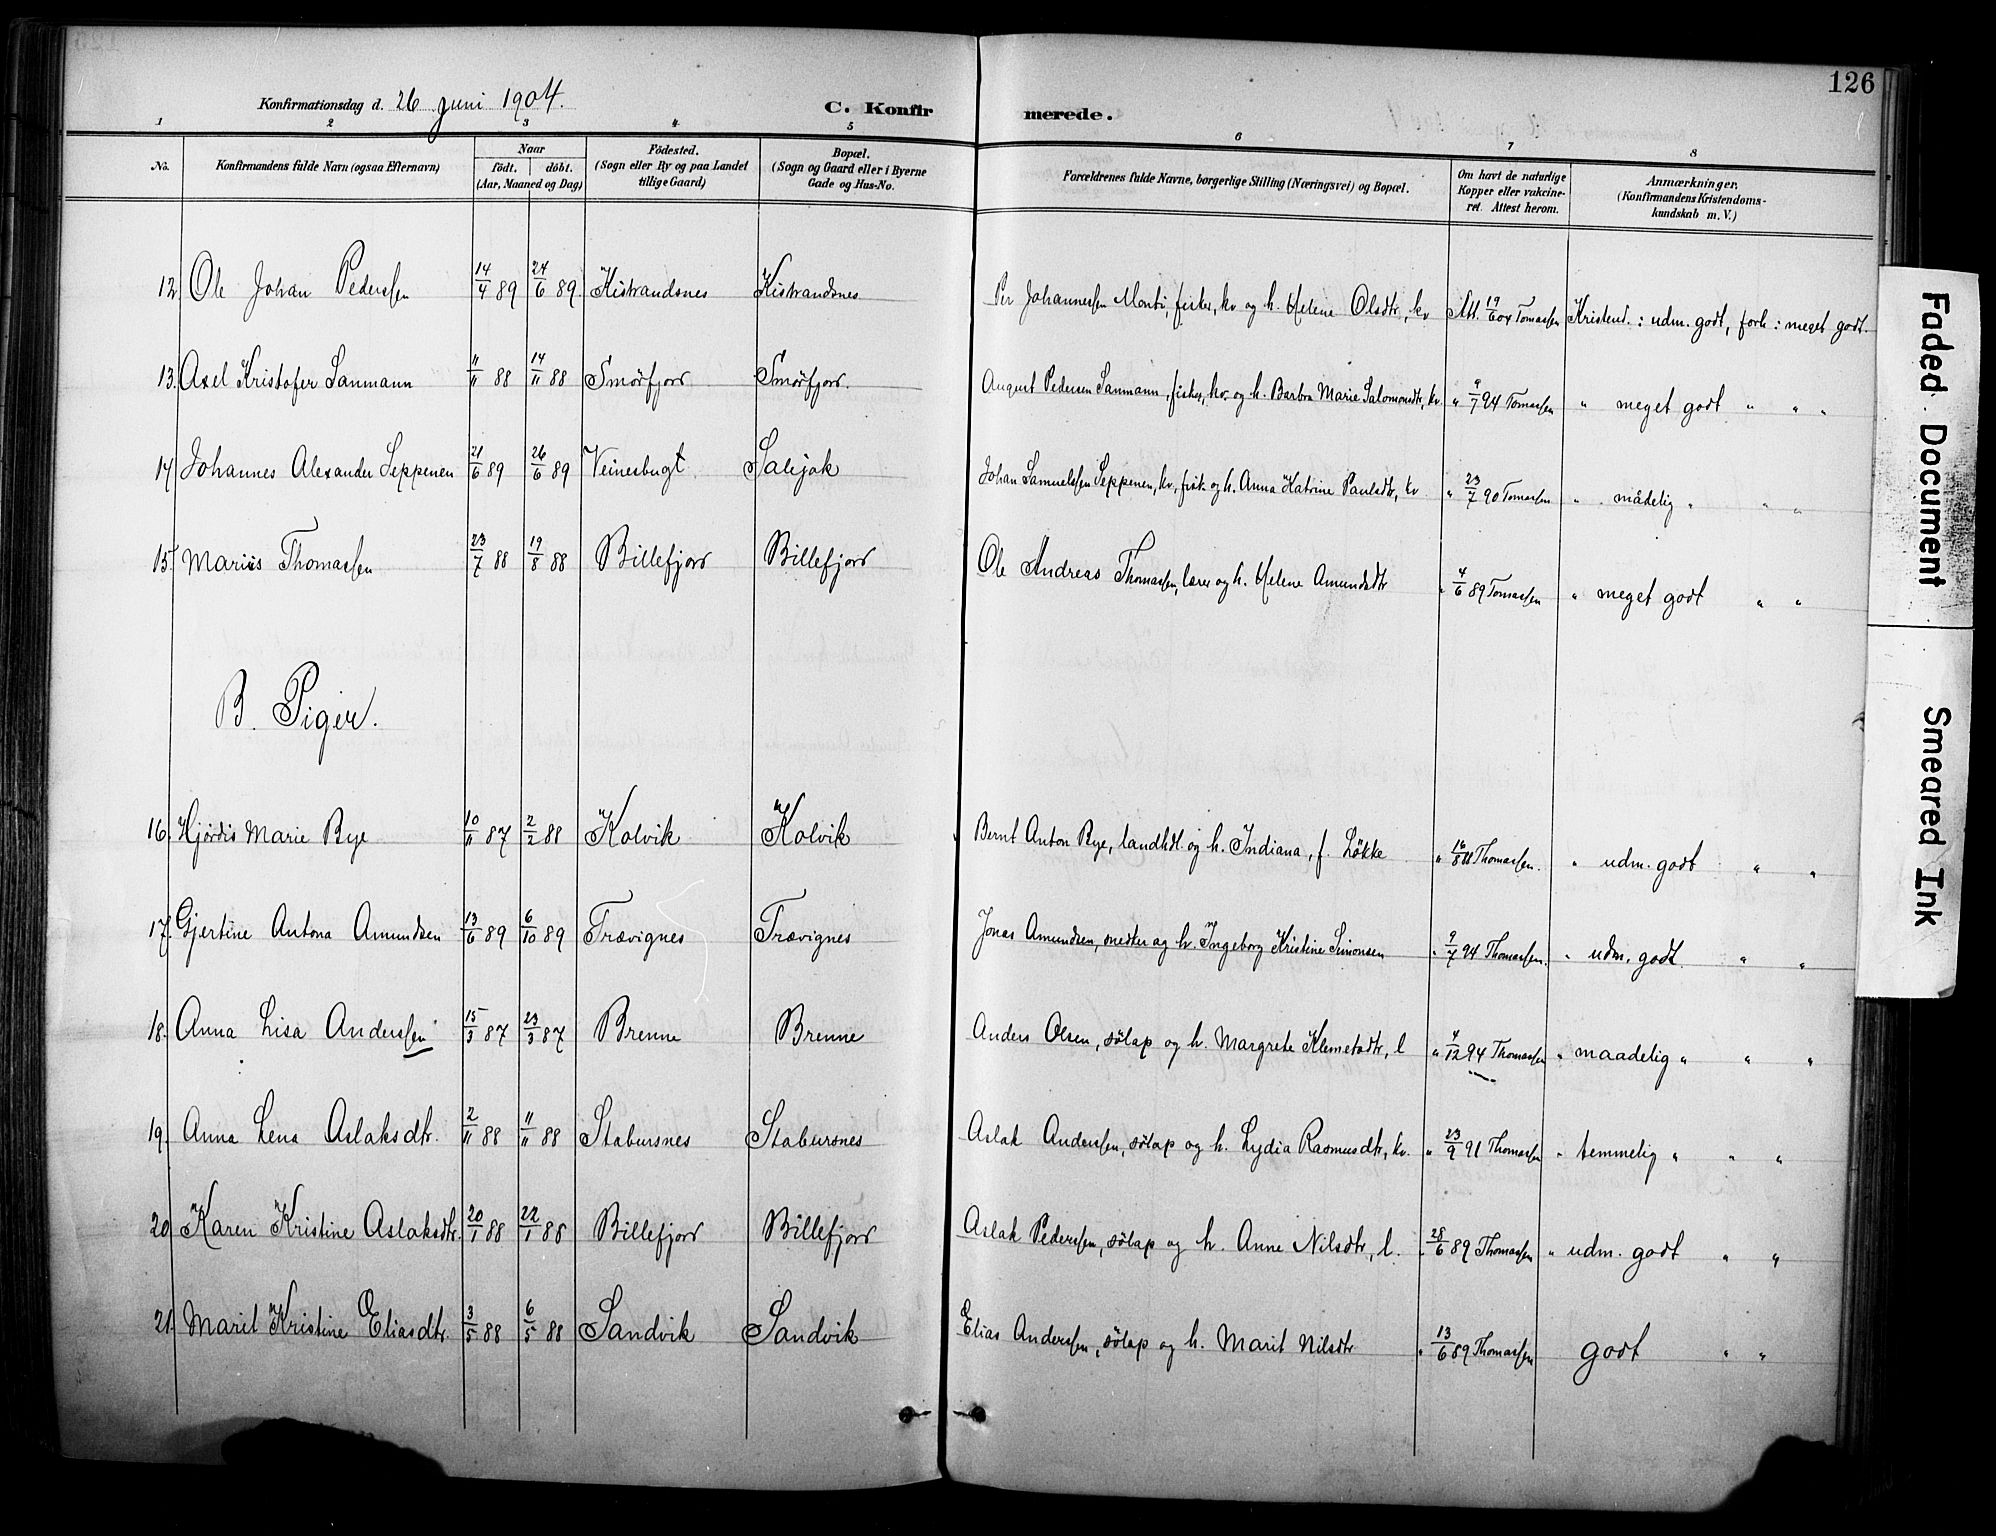 126
Konfirmationsdag d. 26 juni 1904.
C. Konfirmerede.
1 2 3 4 5 6 7 8
No. Konfirmandens fulde Navn (ogsaa Efternavn) Naar födt. döbt. (Aar, Maaned og Dag) Födested. (Sogn eller By og paa Landet tillige Gaard) Bopæl. (Sogn og Gaard eller i Byerne Gade og Hus-No. Forældrenes fulde Navne, borgerlige Stilling (Næringsvei) og Bopæl. Om havt de naturlige Kopper eller vakcineret. Attest herom. Anmærkninger. (Konfirmandens Kristendomskundskab m. V.)
12. Ole Johan Pederssen 14/4 89 24/6 89 Kistrandsnes Kistrandsnes Per Johannessen Monti, fisker, kv og h. Helene Olsdtr, kv Att. 19/6 04 Tomassen Kristend.: udm. godt, forh: meget godt.
13. Axel Kristofer Sanmann 11/11 88 14/11 88 Smørfjord Smørfjord. August Pedersen Sanmann, fisker, kv. og h. Barbra Marie Salomonsdtr, kv. " 9/7 94 Tomassen " meget godt " " "
14 Johannes Alexander Seppenen 21/6 89 26/6 89 Veinesbugt Salejok Johan Samuelssen Seppenen, kv, fisk. og h. Anna Katrine Paulsdtr, kv " 23/7 90 Tomassen " mådelig " " "
15. Marius Thomassen 23/7 88 19/8 88 Billefjord Billefjord Ole Andreas Thomassen, lærer og h. Helene Amundsdtr " 4/6 89 Tomassen " meget godt " "
B. Piger.
16. Hjördis Marie Rye 10/11 87 2/2 88 Kolvik Kolvik Bernt Anton Rye, landhdl. og h. Indiana, f. Lökke " 16/8 Thomassen. " udm. godt " "
17. Gjertine Antona Amundsen 13/6 89 6/10 89 Trævignes Trævignes Jonas Amundsen, snedker og h. Ingeborg Kristine Simonsen " 9/7 94 Thomassen. " udm. godt. " "
18. Anna Lisa Anderssen 15/3 87 23/3 87 Brenne Brenne Anders Olsen, sölap og h. Margrete Klemetsdtr, l " 4/12 94 Thomassen " maadelig " " "
19. Anna Lena Aslaksdtr. 2/11 88 11/11 88 Stabursnes Stabursnes Aslak Anderssen, sölap og h. Lydia Rasmusdtr, kv. " 23/9 91 Thomassen " temmelig " " "
20 Karen Kristine Aslaksdtr. 20/1 88 22/1 88 Billefjord Billefjord Aslak Pederssen, sölap og h. Anne Nilsdtr, l. " 28/6 89 Thomassen " udm. godt " "
21. Marit Kristine Eliasdtr. 3/5 88 6/5 88 Sandvik Sandvik Elias Anderssen, sölap og h. Marit Nilsdtr " 13/6 89 Thomassen godt " "
Faded Document
Smeared Ink